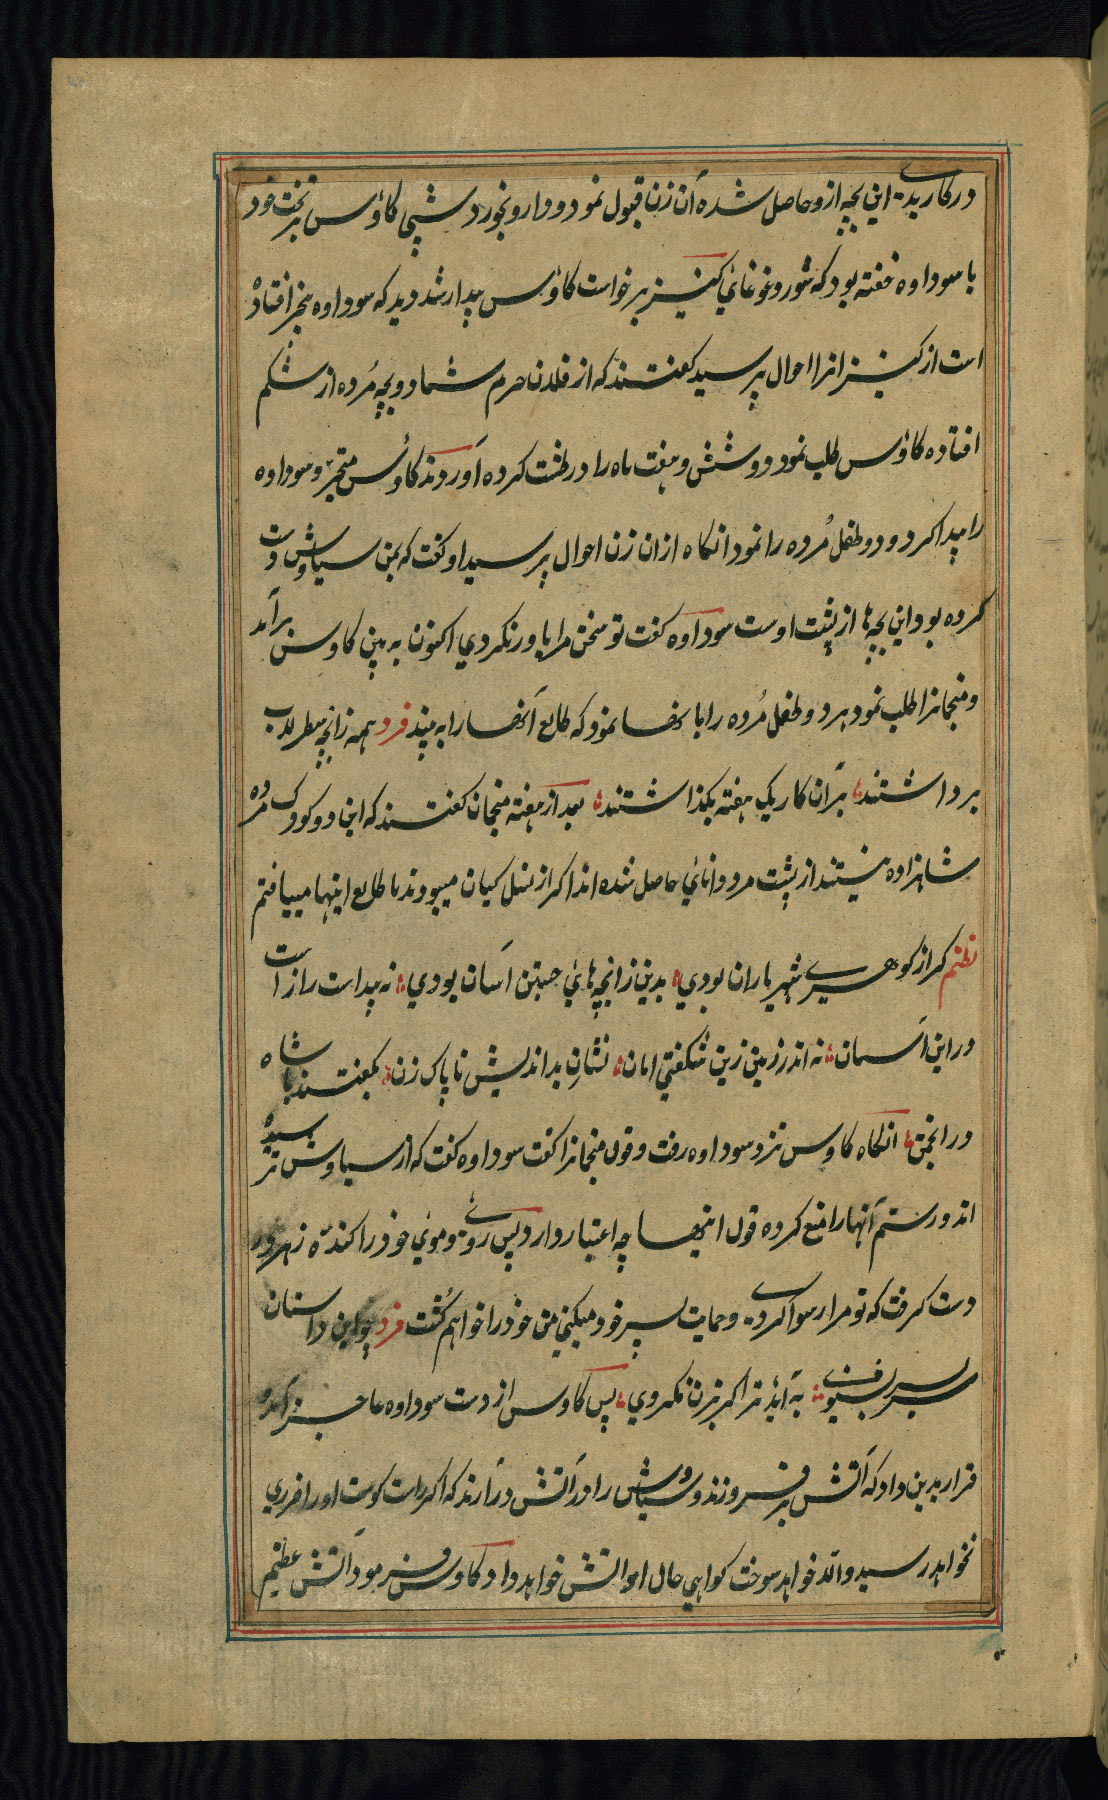 درکار بدی این بچه ازو حاصل شده آن زن قبول نمود و دارو بخورد شبی کاوس بر تخت خود
با سوداوه خفته بود که شور و غوغای کنیز برخواست کاوس بیدار شد دید که سوداوه بیخبر افتاده
است از کنیزانرا احوال پرسید گفتند که از فلان حرم شما دو بچه مُرده از شکم
افتاده کاوس طلب نمود و شش و هفت ماه را در طشت کرده آوردند کاوس متحیر و سوداوه
را بیدا کرد و دو طفل مُرده را نمود انگاه ازان زن احوال پرسید او گفت که بمن سیاوش دست
کرده بود و این بچه ها از پشت اوست سوداوه گفت تو سخن مرا باور نکردی اکنون به بین کاوس برآمد
و منجمانرا طلب نمود هر دو طفل مُرده را با نخها نمود که طالع آنخها را به بیند فرد همه زانچه سطرلاب
برداشتند بر آن کار یک هفته بگذاشتند بعد از هفته منجمان گفتند که این دو کودک مرده
شاهزاده نیستند از پشت مرد دانائی حاصل شده اند اگر از نسل کیان میبودند ما طالع اینها میافتم
نظم گر از گوهر شهریاران بودی بدین زانچه های جستن آسان بودی نه پیداست رازاست
در این آسمان نه اندر زمین زین شگفتی امان نشان بداندیش ناپاک زن بگفتند با شاه
در انجمن انگاه کاوس نزد سوداوه رفت و قول منجمانرا گفت سوداوه گفت که از سیاوش ترسیده
اند و رستم آنها را منع کرده قول اینها چه اعتبار دارد پس روی و موی خود را کنده زهر در
دست گرفت که تو مرا رسوا کردی و حمایت پسر خود میکنی من خود را خواهم کُشت فرد چو این داستان
سر بسر بشنوی به آید ترا گر بزن نگروی پس کاوس از دست سوداوه عاجز آمد
قرار بدین داد که آتش بر فروزند و سیاوش را در آتش درآرند که اگر راست گوست او را ضرری
نخواهد رسید و الّا خواهد سوخت گواهی حال او آتش خواهد داد کاوس فرمود آتش عظیم